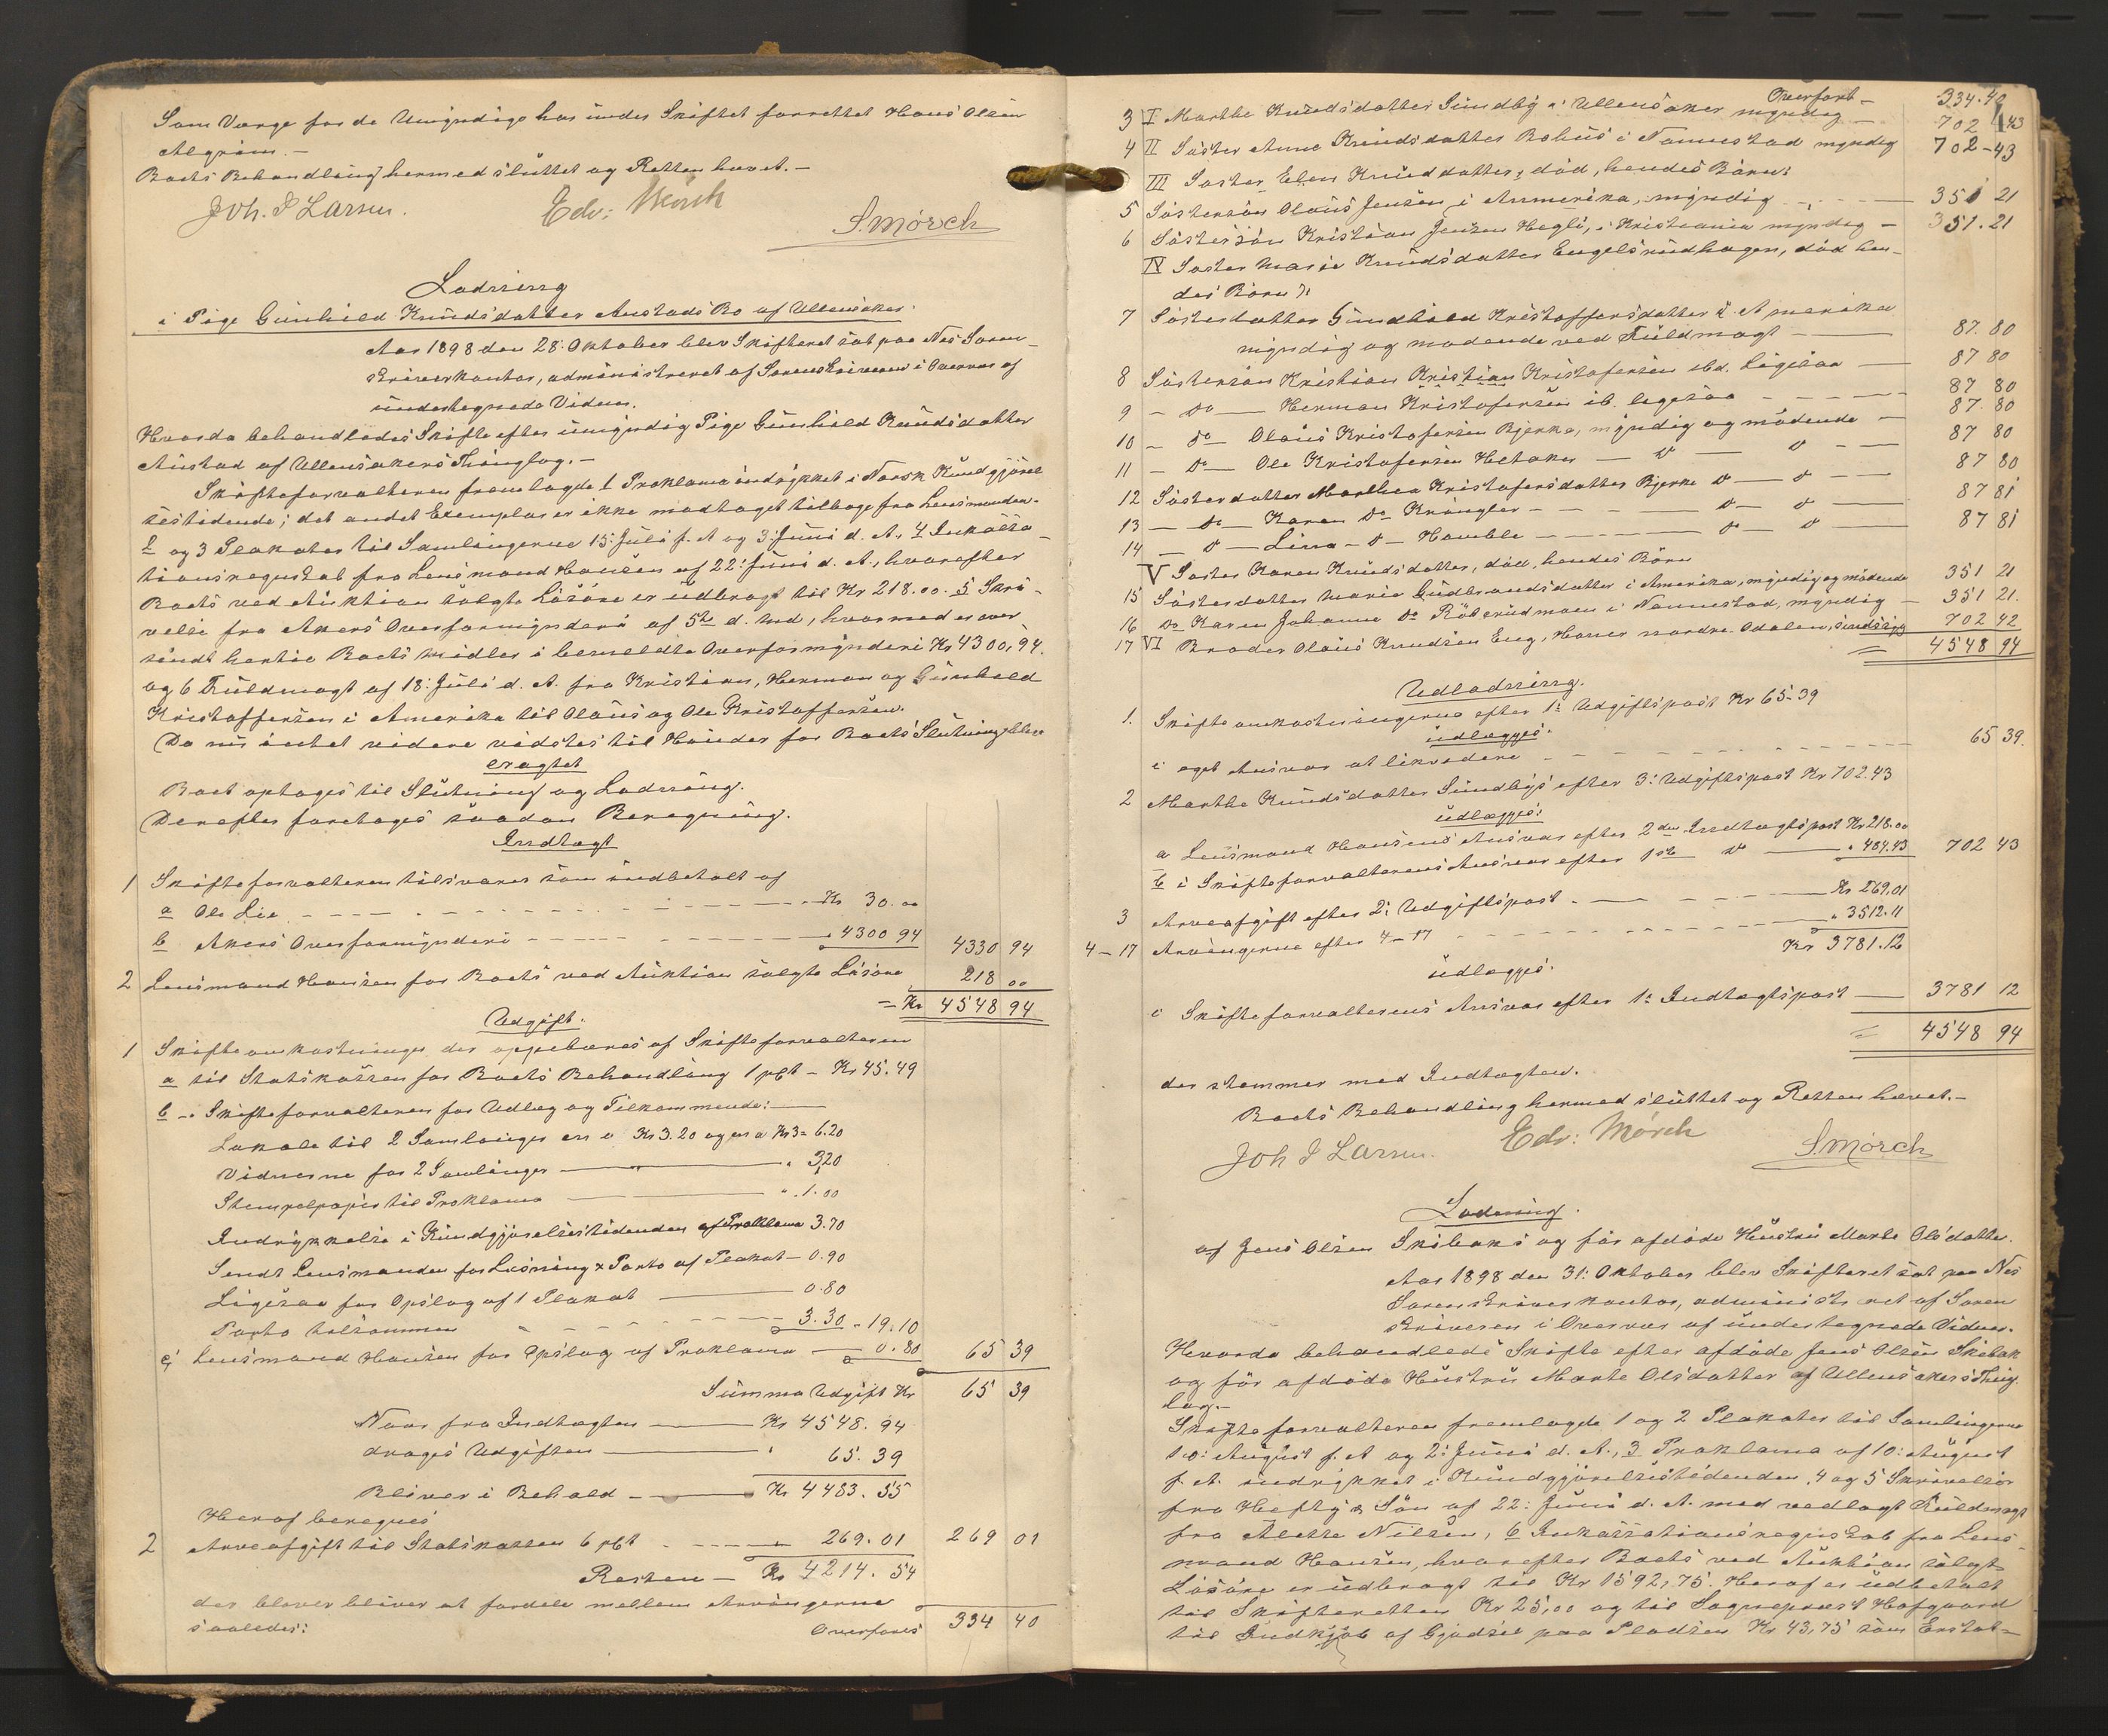 Som Værge for de Umyndige har under Skiftet forrettet Hans Olsen
Algrim.—
Boets Behandling hermed sluttet og Retten hævet.—
Joh. I Larsen. Edv: Mörch
S. Mörch
Lodning
i Pige Gunhild Knudsdatter Austads Bo af Ullensaker.
Aar 1898 den 28: Oktober blev Skifteret sat paa Nes Soren-
skriverkontor, administreret af Sorenskriveren i Overvær af
undertegnede Vidner.
Hvorda behandledes Skifte efter umyndig Pige Gunhild Knudsdatter
Austad af Ullensakers Thinglag.—
Skifteforvalteren fremlagde 1 Proklama indrykket i Norsk Kundgjörel
sestidende; det andet Exemplar er ikke modtaget tilbage fra Lensmanden.
2 og 3 Plakater til Samlingerne 15: Juli f. A og 3: Juni d. A., 4 Inkassa-
tionsregnskab fra Lensmand Hansen af 22: Juni d. A., hvorefter
Boets ved Auktion solgte Lösöre er udbragt til Kr 218.00. 5 Skri-
velse fra Akers Overformynderi af 5te d. Md, hvormed er over
sendt hertil Boets Midler i bemeldte Overformynderi Kr 4300,94.
og 6 Fuldmagt af 18: Juli d. A. fra Kristian, Herman og Gunhild
Kristoffersen i Amerika til Olaus og Ole Kristoffersen.
Da nu intet videre vidstes til Hinder for Boets Slutning blev
eragtet
Boet optages til Slutning og Lodning.
Derefter foretages saadan Beregning.
Indtægt
1 Skifteforvalteren tilsvarer som indbetalt af
a Ole Lie — Kr 30.00
b Akers Overformynderi — " 4300 94 4330 94
2 Lensmand Hansen for Boets ved Auktion solgte Lösöre 218 00
= Kr 4548 94
Udgift.
1 Skifteomkostninger der oppebæres af Skifteforvalteren
a til Statskassen for Boets Behandling 1 pCt — Kr 45.49
b -. Skifteforvalteren for Udlæg og Tilkommende: —
Lokale til 2 Samlinger en a Kr 3.20 og en a Kr 3 = 6.20
Vidnerne for 2 Samlinger — " 3,20
Stempelpapir til Proklama — " 1.00
Indrykkelse i Kundgjörelsestidenden af Proklama 3.70
Sendt Lensmanden for Læsning & Porto af Plakat — 0.90
Ligesaa for Opslag af 1 Plakat — 0.80
Porto tilsammen — 3.30 " 19.10
c, Lensmand Hansen for Opslag af Proklama — 0.80 65 39
Summa Udgift Kr 65 39
Naar fra Indtægten — Kr 4548.94
drages Udgiften — " 65.39
Bliver i Behold — Kr 4483.55
Heraf beregnes
2 Arveafgift til Statskassen 6 pCt — 269.01 269 01
Resten — Kr 4214.54
der bliver at fordele mellem Arvingerne
saaledes: Overföres 334 40
Overfört — 334.40
3 I Marthe Knudsdatter Sundby i Ullensaker myndig — 702 43
4 II Söster Anne Knudsdatter Bohus i Nannestad myndig 702-43
III Söster Elen Knudsdatter, död, hendes Börn:
5 Söstersön Olaus Jensen i Amerika, myndig — 351 21
6 Söstersön Kristian Jensen Hegli, i Kristiania myndig — 351.21
IV Söster Marie Knudsdatter Engelsrudhagen, död hen-
des Börn:
7 Sösterdatter Gundhild Kristoffersdatter i Amerika
myndig og mödende ved Fuldmagt — 87.80
8 Söstersön Kristian Kristian Kristofersen ibd. ligesaa — 87 80
9 — do — Herman Kristofersen ib. ligesaa — 87 80
10 — do — Olaus Kristofersen Bjerke, myndig og mödende — 87.80
11 — do — Ole Kristofersen Hetaker — do — do — 87 80
12 Sösterdatter Marthea Kristofersdatter Bjerke do — do — 87 80
13 — do — Karen do Krangler — do — do — 87 81
14 — do — Lina — do — Homble — do — do — 87 81
V Söster Karen Knudsdatter, död, hendes Börn
15 Sösterdatter Maria Gudbrandsdatter i Amerika, myndig og mödende 351 21
16 do Karen Johanne do Röverudmoen i Nannestad, myndig — 351 21.
17 VI Broder Olaus Knudsen Eng, Horner nordre Odalen, myndig 702 42
= 4548 94
Udlodning.
1. Skifteomkostningerne efter 1: Udgiftspost Kr 65-39
udlægges:
i eget Ansvar at likvidere — 65 39.
2 Marthe Knudsdatter Sundbys efter 3: Udgiftspost Kr 702.43
udlægges:
a Lensmand Hansens Ansvar efter 2den Indtægtspost Kr 218.00
b i Skifteforvalterens Ansvar efter 1ste do — " 484.43 702 43
3 Arveafgift efter 2: Udgiftspost — Kr 269.01
4-17 Arvingerne efter 4-17 — " 3512.11
Kr 3781.12
udlægges:
i Skifteforvalterens Ansvar efter 1: Indtægtspost — 3781 12
= 4548 94
der stemmer med Indtægten.
Boets Behandling hermed sluttet og Retten hævet.—
Joh I Larsen. Edv: Mörch S. Mörch
Lodning.
af Jens Olsen Skibaks og för afdöde Hustru Marte Olsdatter.
Aar 1898 den 31: Oktober blev Skifteret sat paa Nes
Sorenskriverkontor, administreret af Soren
skriveren i Overvær af undertegnede Vidner.
Hvorda behandledes Skifte efter afdöde Jens Olsen Skibak
og för afdöde Hustru Marte Olsdatter af Ullensakers Thing
lag.—
Skifteforvalteren fremlagde 1 og 2 Plakater til Samlingerne
10: August f. A og 2: Juni d. A., 3 Proklama af 10: August
f. A. indrykket i Kundgjörelsestidenden, 4 og 5 Skrivelser
fra Hefty & Sön af 22: Juni d. A. med vedlagt Fuldmagt
fra Alette Nilsen, 6 Inkassationsregnskab fra Lens
mand Hansen, hvorefter Boets ved Auktion solgte
Lösöre er udbragt til Kr 1592,75. Heraf er udbetalt
til Skifteretten Kr 25,00 og til Sogneprest Hofgaard
til Indkjöb af Gjödsel paa Pladsen Kr 43,75 som Erstat-